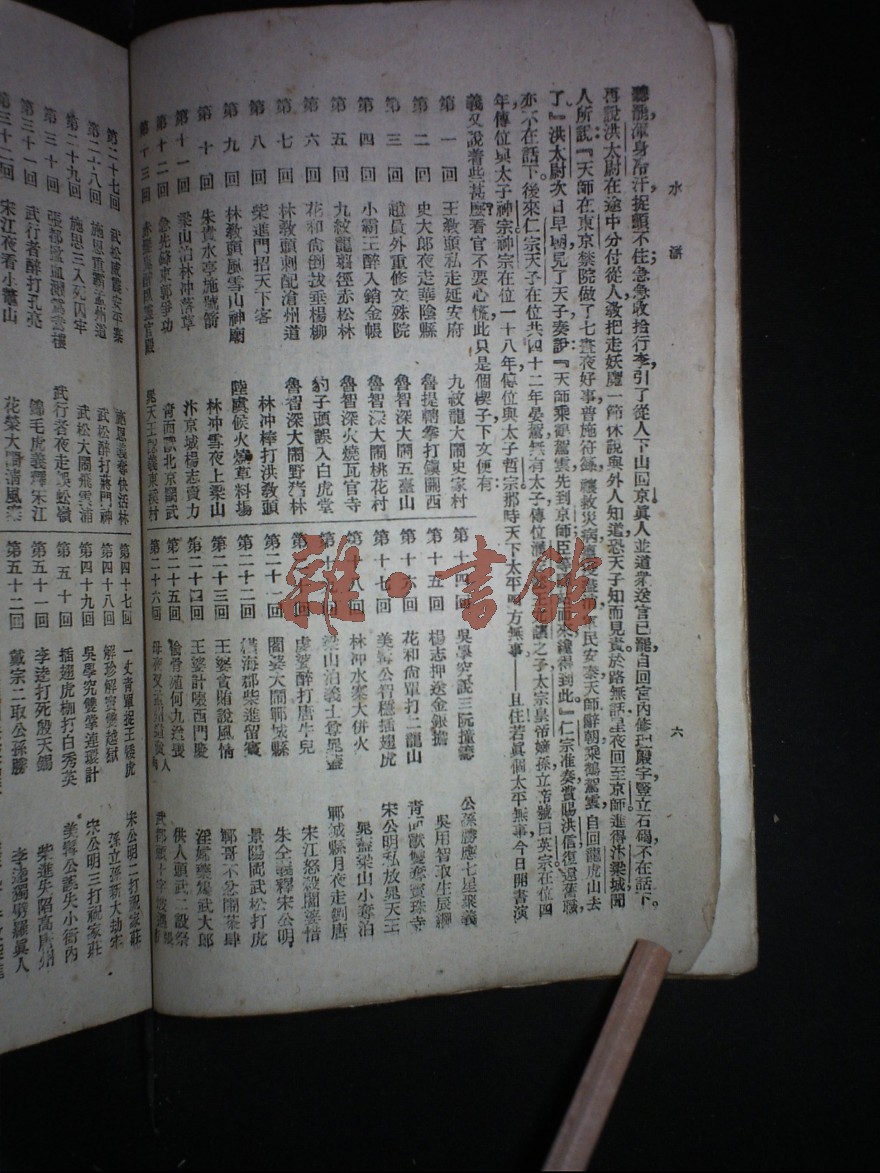 水滸
六
聽罷渾身冷汗捉顫不住急急收拾行李引了從人下山回京眞人並道衆送官已罷自回宮內修理殿宇豎立石碣不在話下。
再說洪太尉在途中分付從人敎把走妖魔一節休說與外人知道恐天子知而見責於路無話星夜回至京師進得汴梁城聞
人所說『天師在東京禁院做了七晝夜好事普施符籙禳救災病軍民安泰天師辭朝乘鶴駕雲自回龍虎山去
了』洪太尉次日早朝見了天子奏說『天師乘鶴駕雲先到京師臣等而來纔得到此』仁宗准奏賞賜洪信復還舊職
亦不在話下後來仁宗天子在位共四十二年晏駕無有太子傳位之子太宗皇帝嫡孫立帝號曰英宗在位四
年傳位與太子神宗神宗在位一十八年傳位與太子哲宗那時天下太平四方無事——且住若眞個太平無事今日開書演
義又說着些甚麽看官不要心慌此只是個楔子下文便有：
第一回 王敎頭私走延安府 九紋龍大鬧史家村
第二回 史大郎夜走華陰縣 魯提轄拳打鎭關西
第三回 趙員外重修文殊院 魯智深大鬧五臺山
第四回 小霸王醉入銷金帳 魯智深大鬧桃花村
第五回 九紋龍翦徑赤松林 魯智深火燒瓦官寺
第六回 花和尙倒拔垂楊柳 豹子頭誤入白虎堂
第七回 林敎頭刺配滄州道 魯智深大鬧野猪林
第八回 柴進門招天下客 林冲棒打洪敎頭
第九回 林敎頭風雪山神廟 陸虞候火燒草料場
第十回 朱貴水亭施號箭 林冲雪夜上梁山
第十一回 梁山泊林冲落草 汴京城楊志賣刀
第十二回 急先鋒東郭爭功 靑面獸北京鬬武
第十三回 赤髮鬼醉臥靈官殿 晁天王認義東溪村
第十四回 吳學究說三阮撞籌 公孫勝應七星聚義
第十五回 楊志押送金銀擔 吳用智取生辰綱
第十六回 花和尙單打二龍山 靑面獸雙奪寶珠寺
第十七回 美髯公智穩插翅虎 宋公明私放晁天王
第十八回 林冲水寨大併火 晁蓋梁山小奪泊
梁山泊義士尊晁蓋 鄆城縣月夜走劉唐
虔婆醉打唐牛兒 宋江怒殺閻婆惜
第二十一回 閻婆大鬧鄆城縣 朱仝義釋宋公明
第二十二回 橫海郡柴進留賓 景陽岡武松打虎
第二十三回 王婆貪賄說風情 鄆哥不忿鬧茶肆
第二十四回 王婆計啜西門慶 淫婦藥鴆武大郎
第二十五回 偸骨殖何九送喪 供人頭武二設祭
第二十六回 母夜叉孟州道賣人肉 武都頭十字坡遇張靑
第二十七回 武松威震安平寨 施恩義奪快活林
第二十八回 施恩重霸孟州道 武松醉打蔣門神
第二十九回 施恩三入死囚牢 武松大鬧飛雲浦
第三十回 張都監血濺鴛鴦樓 武行者夜走蜈蚣嶺
第三十一回 武行者醉打孔亮 錦毛虎義釋宋江
第三十二回 宋江夜看小鼇山 花榮大鬧淸風寨
第四十七回 一丈靑單捉王矮虎 宋公明二打祝家莊
第四十八回 解珍解寶雙越獄 孫立孫新大劫牢
第四十九回 吳學究雙掌連環計 宋公明三打祝家莊
第五十回 插翅虎枷打白秀英 美髯公誤失小衙內
第五十一回 李逵打死殷天錫 柴進失陷高唐州
第五十二回 戴宗二取公孫勝 李逵獨劈羅眞人
雜·書館